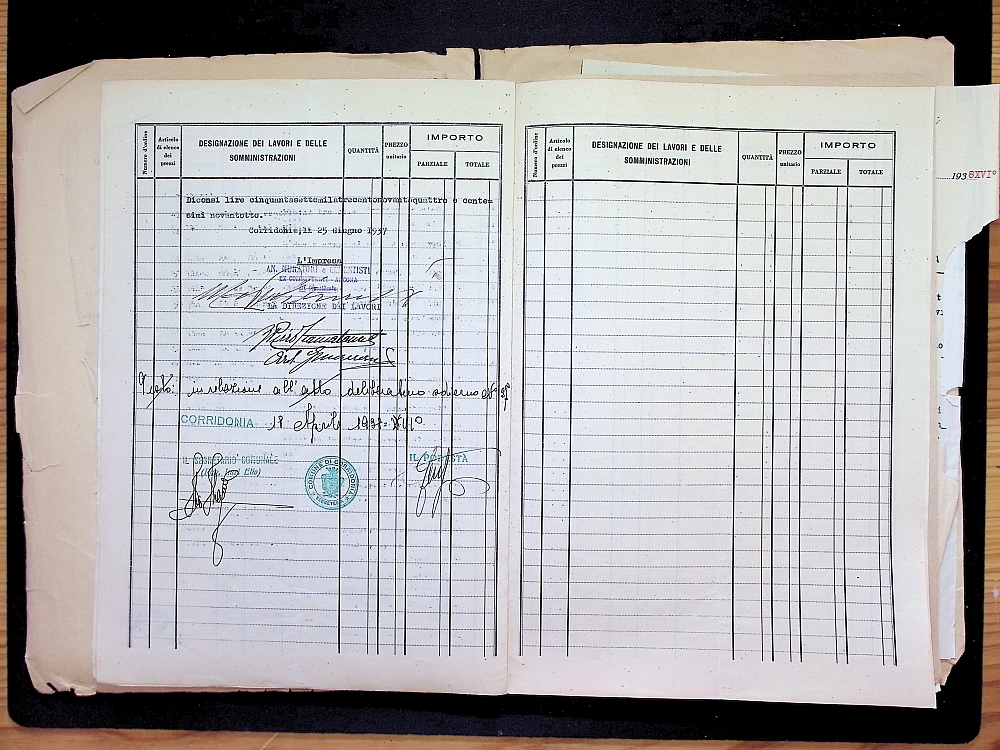 Numero d'ordine
Articolo di elenco dei prezzi
DESIGNAZIONE DEI LAVORI E DELLE SOMMINISTRAZIONI
QUANTITÀ
PREZZO unitario
IMPORTO
PARZIALE
TOTALE
Diconsi lire cinquantasettemilatrecentonovantaquattro e cente=
simi novantotto.
Corridonia, li 25 Giugno 1937
L'Impresa
AN. MURATORI e CEMENTISTI
LA DIREZIONE DEI LAVORI
Visto: in relazione all'atto deliberativo odierno
CORRIDONIA 18 Aprile 1938=XVI°
IL SEGRETARIO COMUNALE
IL PODESTÀ
COMUNE DI CORRIDONIA
Numero d'ordine
Articolo di elenco dei prezzi
DESIGNAZIONE DEI LAVORI E DELLE SOMMINISTRAZIONI
QUANTITÀ
PREZZO unitario
IMPORTO
PARZIALE
TOTALE
1938XVI°